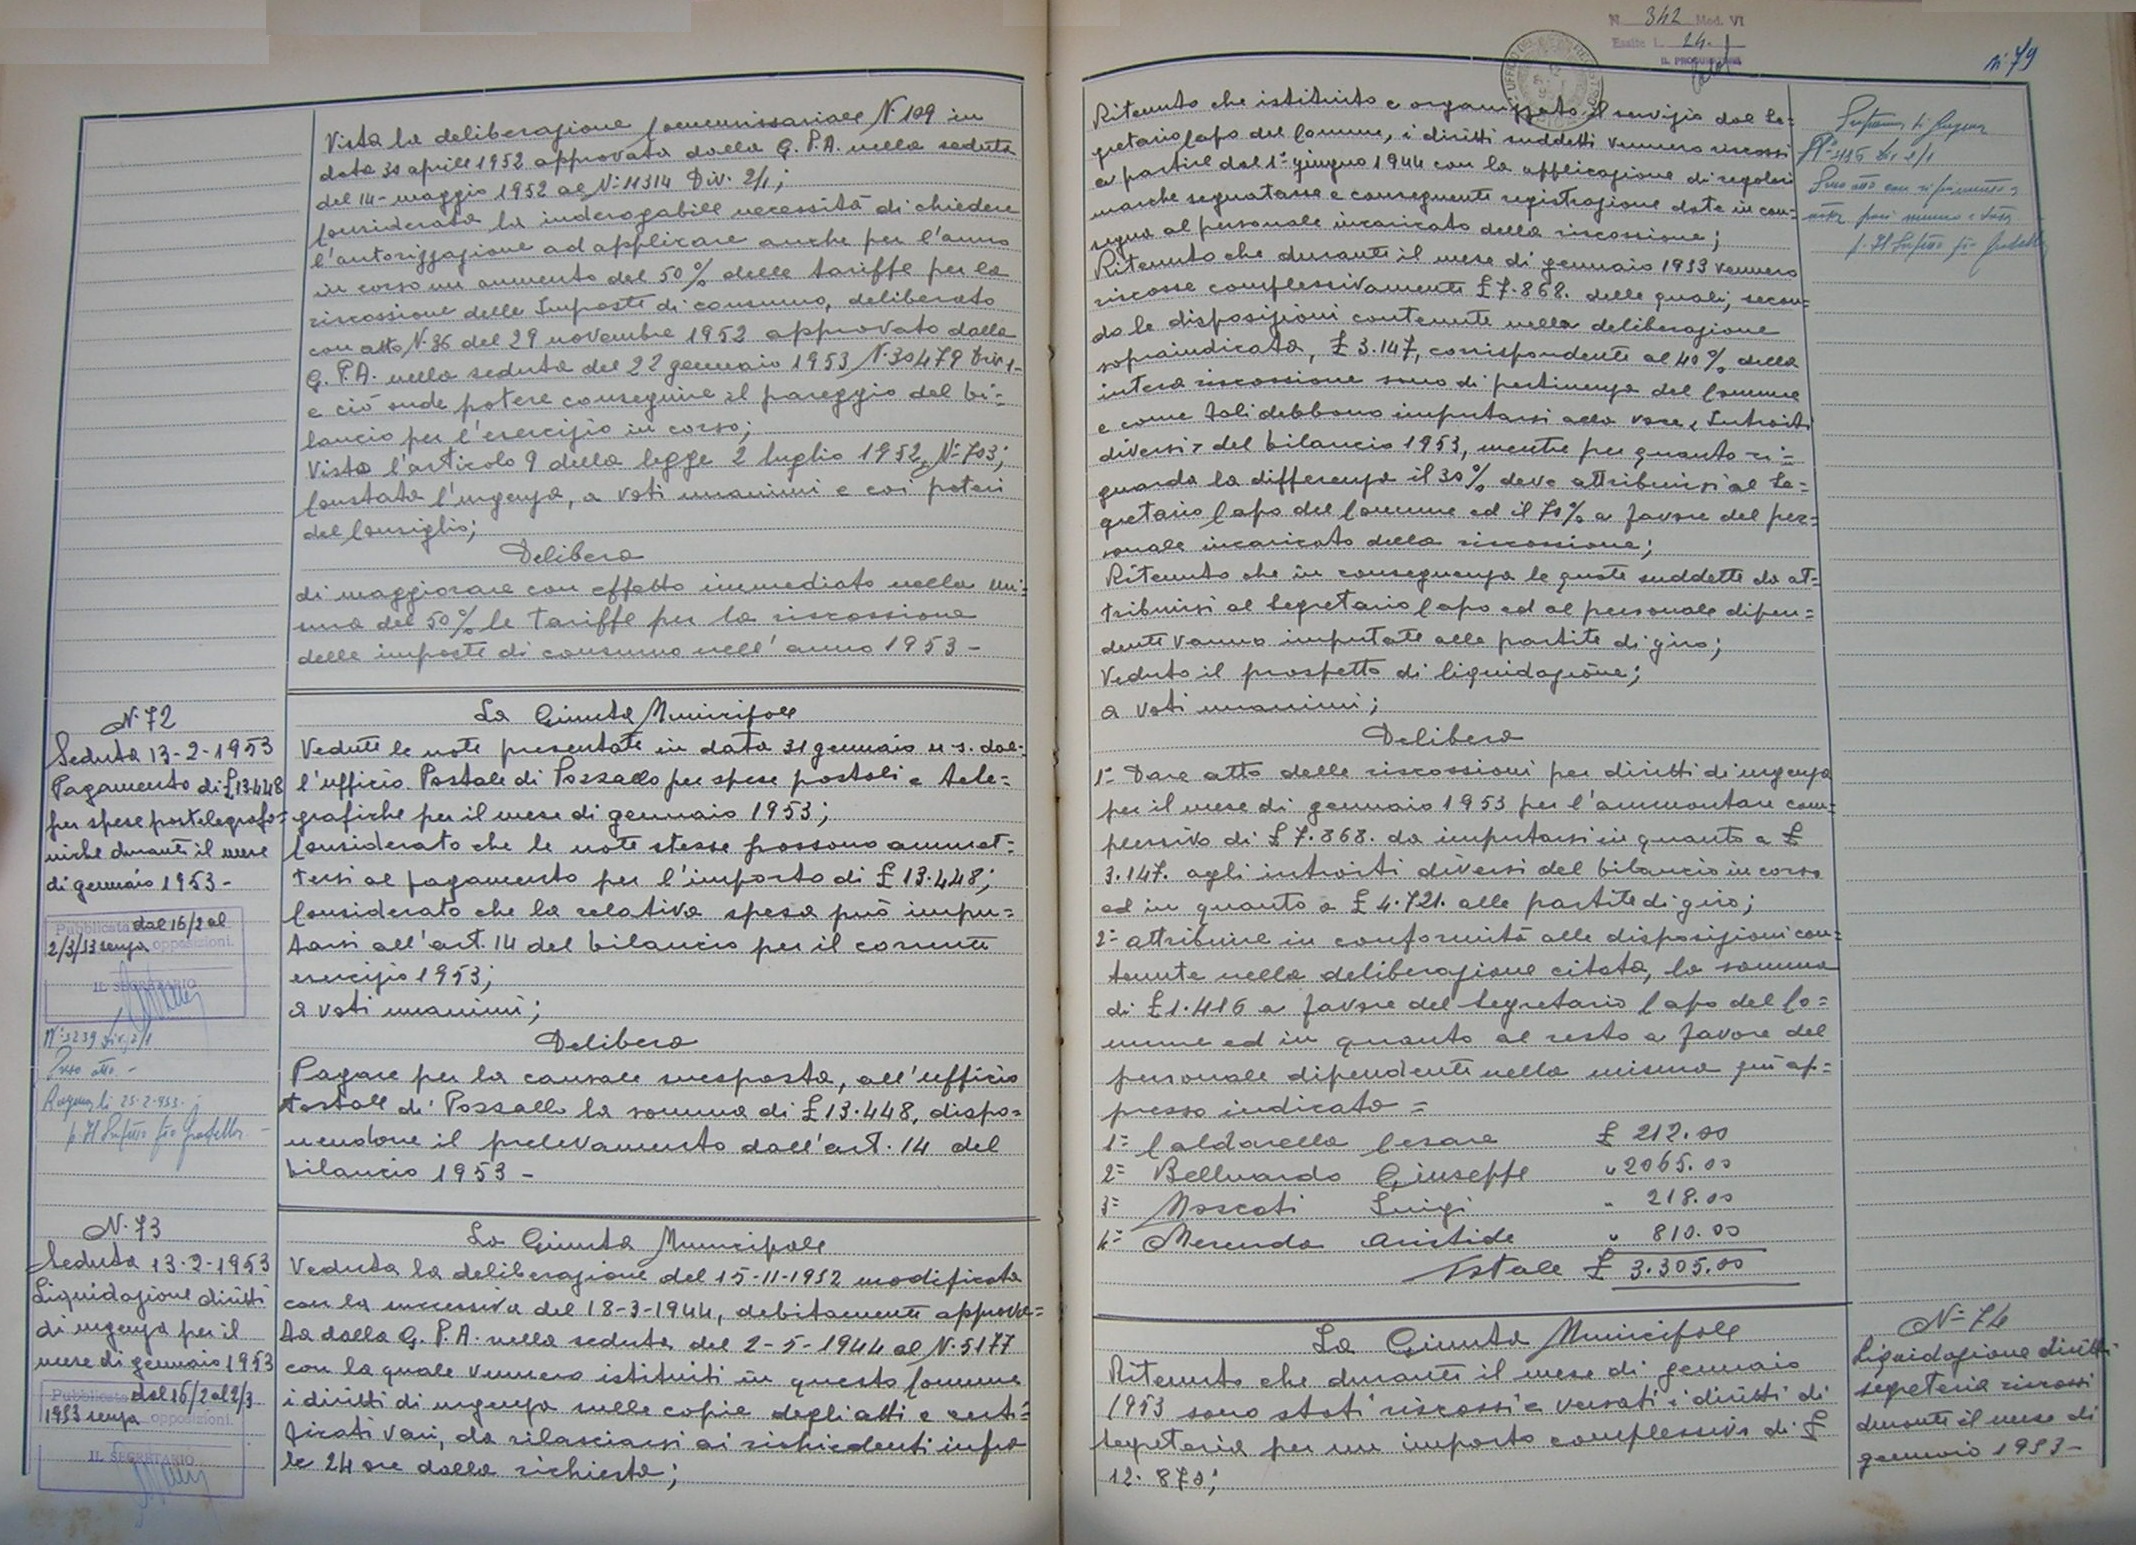 Vista la deliberazione Commissariale N 109 in
data 30 aprile 1952 approvata dalla G. P.A. nella seduta
del 14-maggio 1952 al N= 11314 Div. 2/1;
Considerata la inderogabile necessità di chiedere
l'autorizzazione ad applicare anche per l'anno
in corso un aumento del 50% delle tariffe per la
riscossione delle Imposte di consumo, deliberato
con atto N. 86 del 29 novembre 1952 approvato dalla
G. P.A. nella seduta del 22 gennaio 1953 N. 30479 Div. 1-
e ciò onde potere conseguire il pareggio del bi=
lancio per l'esercizio in corso;
Visto l'articolo 9 della legge 2 luglio 1952, N= 703;
Constatata l'urgenza, a voti unanimi e coi poteri
del Consiglio;
Delibera
di maggiorare con effetto immediato nella mi=
sura del 50% le tariffe per la riscossione
delle imposte di consumo nell'anno 1953 -
N. 72
Seduta 13-2-1953
Pagamento di £13.448
per spese postelegrafo=
niche durante il mese
di gennaio 1953 -
Pubblicata dal 16/2 al
2/3/53 senza opposizioni.
IL SEGRETARIO
N= 5239 Div. 2/1
Preso atto -
Ragusa li 25-2-953.
p. Il Prefetto
La Giunta Municipale
Vedute le note presentate in data 31 gennaio u-s. dal=
l'ufficio Postale di Pozzallo per spese postali e tele=
grafiche per il mese di gennaio 1953;
Considerato che le note stesse possono ammet=
tersi al pagamento per l'importo di £ 13.448;
Considerato che la relativa spesa può impu=
tarsi all'art. 14 del bilancio per il corrente
esercizio 1953;
a voti unanimi;
Delibera
Pagare per la causale suesposta, all'ufficio
Postale di Pozzallo la somma di £ 13.448, dispo=
nendone il prelevamento dall'art. 14 del
bilancio 1953 -
N. 73
Seduta 13-2-1953
Liquidazione diritti
di urgenza per il
mese di gennaio 1953
Pubblicata dal 16/2 al 2/3
1953 senza opposizioni.
IL SEGRETARIO
La Giunta Municipale
Veduta la deliberazione del 15-11-1952 modificata
con la successiva del 18-3-1944, debitamente approva=
ta dalla G. P.A. nella seduta del 2-5-1944 al N. 5177
con la quale vennero istituiti in questo Comune
i diritti di urgenza sulle copie degli atti e certi=
ficati vari, da rilasciarsi ai richiedenti infra
le 24 ore dalla richiesta;
N. 342 Mod. VI
Esatte L. 24.
IL PROCURATORE
n. 79
Ritenuto che istituito e organizzato il servizio dal Se=
gretario Capo del Comune, i diritti suddetti vennero riscossi
a partire dal 1= giugno 1944 con la applicazione di regolari
marche segnatasse e conseguente registrazione date in con=
segna al personale incaricato della riscossione;
Ritenuto che durante il mese di gennaio 1953 vennero
riscosse complessivamente £ 7.868. delle quali, secon=
do le disposizioni contenute nella deliberazione
sopraindicata, £ 3.147, corrispondente al 40% della
intera riscossione sono di pertinenza del Comune
e come tali debbono imputarsi alla voce "Introiti
diversi" del bilancio 1953, mentre per quanto ri=
guarda la differenza il 30% deve attribuirsi al Se=
gretario Capo del Comune ed il 70% a favore del per=
sonale incaricato della riscossione;
Ritenuto che in conseguenza le quote suddette da at=
tribuirsi al Segretario Capo ed al personale dipen=
dente vanno imputate alle partite di giro;
Veduto il prospetto di liquidazione;
a voti unanimi;
Delibera
1= Dare atto delle riscossioni per diritti di urgenza
per il mese di gennaio 1953 per l'ammontare com=
plessivo di £ 7.868. da imputarsi in quanto a £
3.147. agli introiti diversi del bilancio in corso
ed in quanto a £ 4.721. alle partite di giro;
2= attribuire in conformità alle disposizioni con=
tenute nella deliberazione citata, la somma
di £ 1.416 a favore del Segretario Capo del Co=
mune ed in quanto al resto a favore del
personale dipendente nella misura qui ap=
presso indicata =
1= Caldarella Cesare £ 212.00
2= Belluardo Giuseppe " 2065.00
3= Moscati Luigi " 218.00
4= Merenda Aristide " 810.00
Totale £ 3.305.00
Prefettura di Ragusa
Preso atto con riferimento a
p. Il Prefetto
La Giunta Municipale
Ritenuto che durante il mese di gennaio
1953 sono stati riscossi e versati i diritti di
segreteria per un importo complessivo di £
12.870;
N= 74
Liquidazione diritti
segreteria riscossi
durante il mese di
gennaio 1953 -